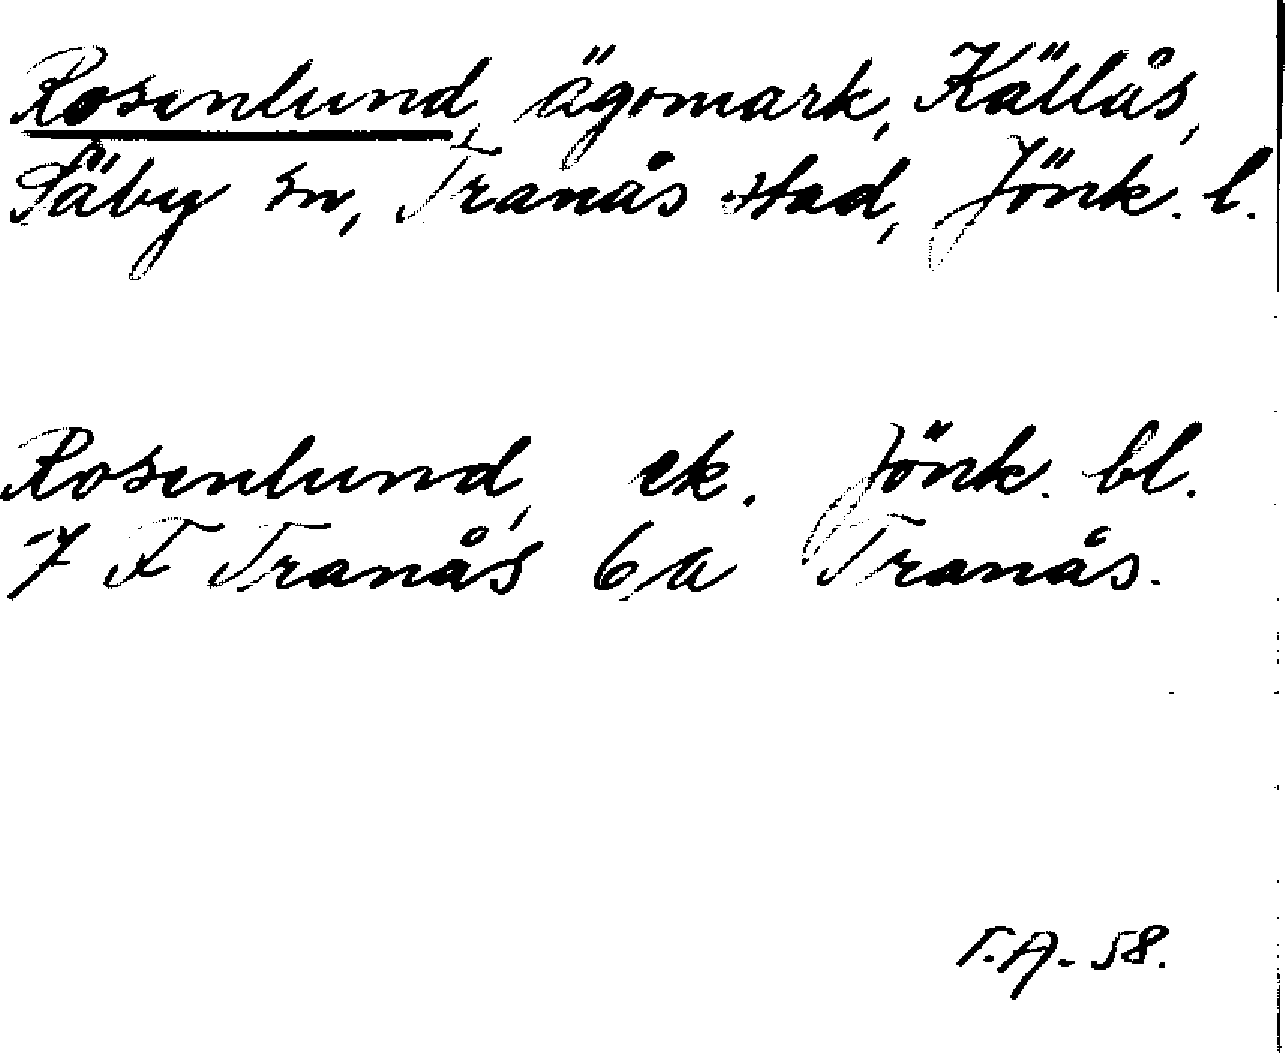 Rosenlund, ägomark, Källås,
Säby sn, Tranås stad, Jönk. l.
Rosenlund, ek. Jönk. bl.
7 F Tranås 6 a Tranås.
T.A-58.